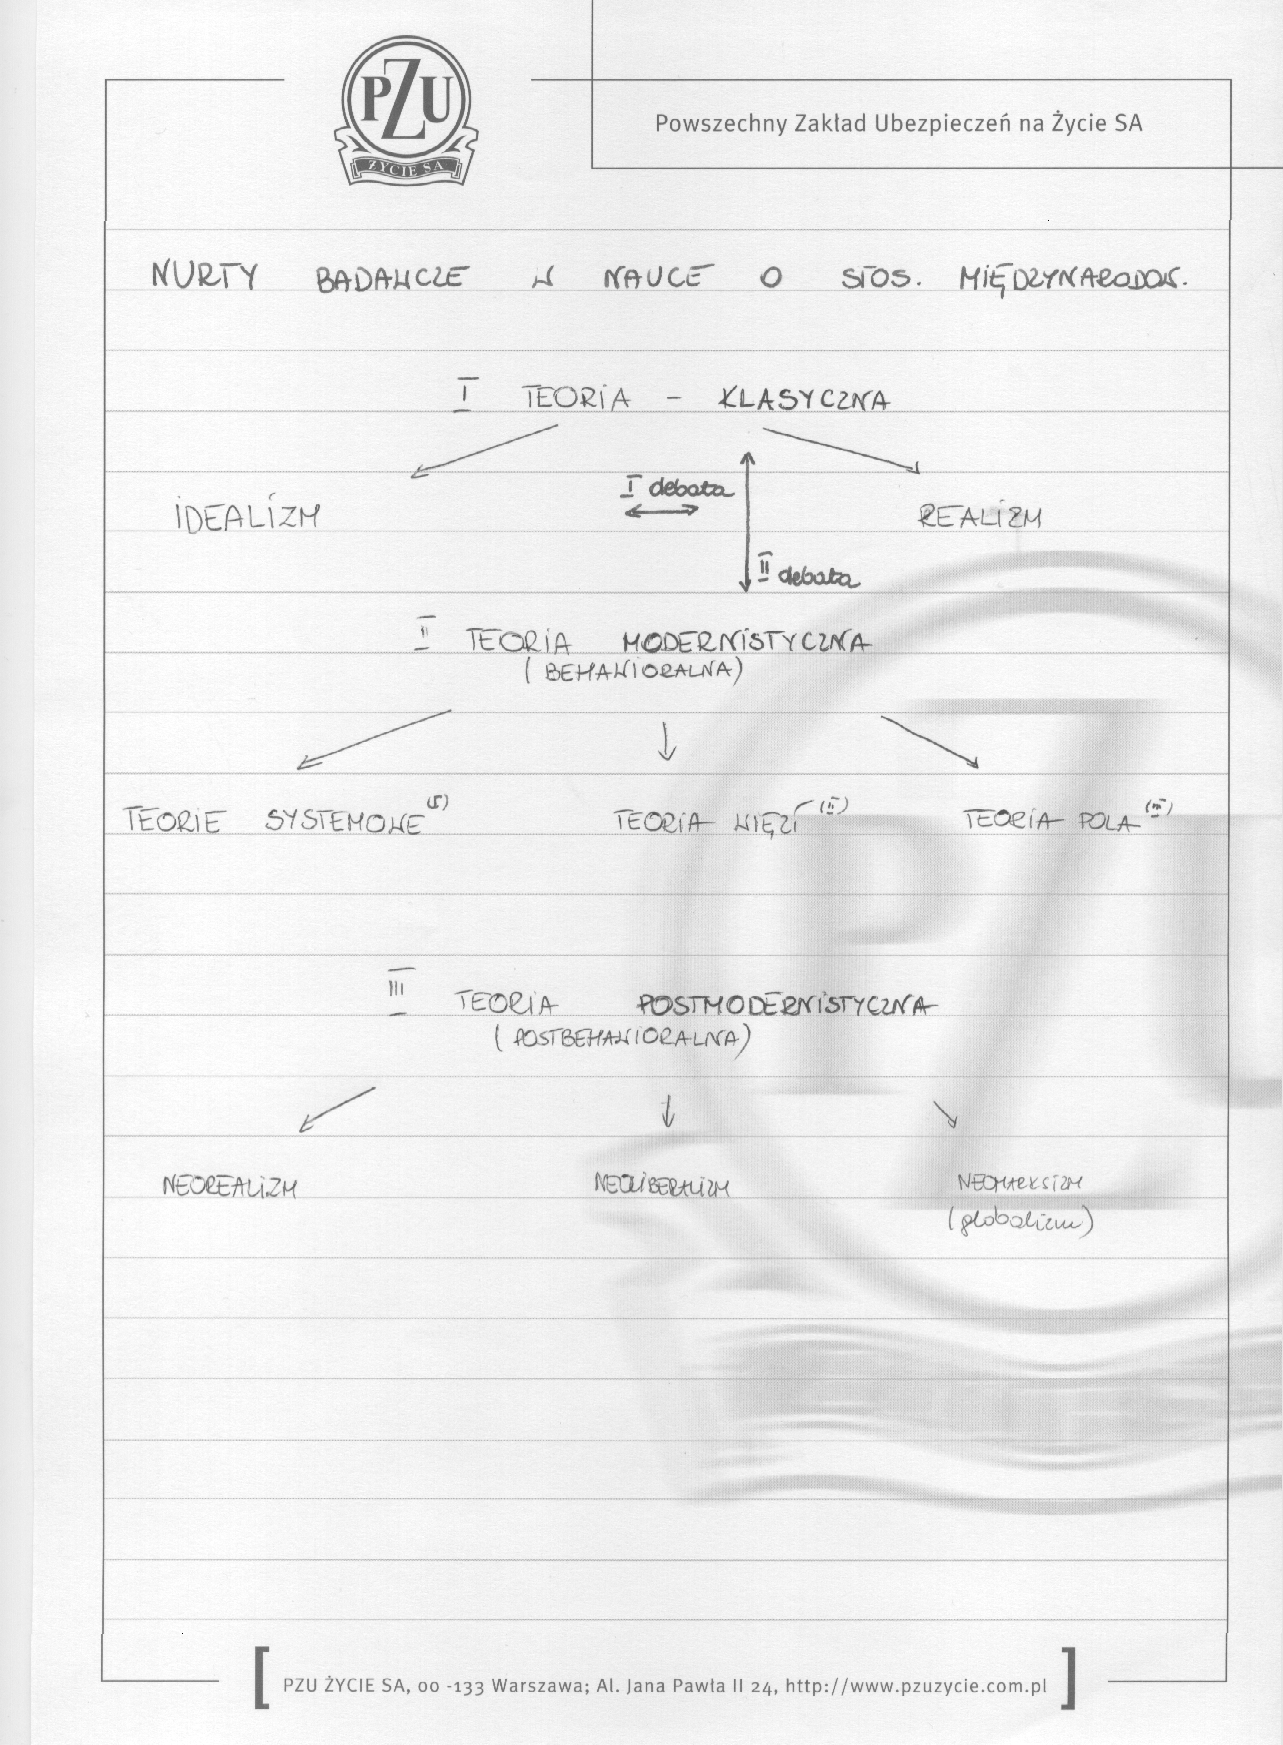 PZU
ŻYCIE SA
Powszechny Zakład Ubezpieczeń na Życie SA
NURTY BADAWCZE W NAUCE O STOS. MIĘDZYNARODOW.
I TEORIA - KLASYCZNA
I debata
IDEALIZM REALIZM
II debata
II TEORIA MODERNISTYCZNA
( BEHAWIORALNA)
TEORIE SYSTEMOWE (I) TEORIA WIĘZI (II) TEORIA POLA (III)
III TEORIA POSTMODERNISTYCZNA
( POSTBEHAWIORALNA)
NEOREALIZM NEOLIBERALIZM NEOMARKSIZM
(globalizm)
[ PZU ŻYCIE SA, 00 -133 Warszawa; Al. Jana Pawła II 24, http://www.pzuzycie.com.pl ]